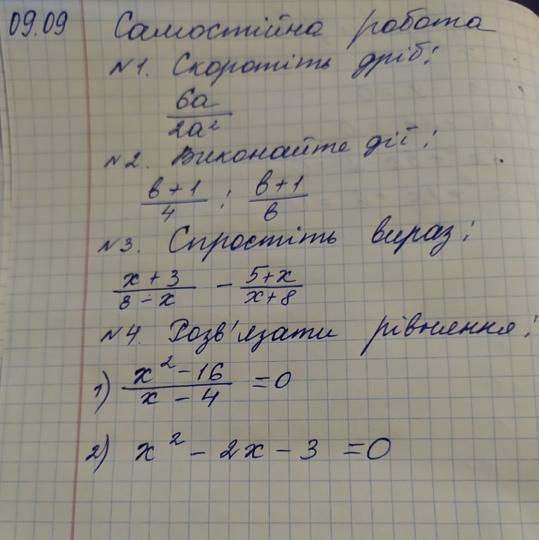 09.09 Самостійна робота
№1. Скоротіть дріб:
6a/2a²
№2. Виконайте дії:
(в+1)/4 : (в+1)/в
№3. Спростіть вираз:
(x+3)/(8-x) - (5+x)/(x+8)
№4. Розв'язати рівняння:
1) (x²-16)/(x-4) = 0
2) x² - 2x - 3 = 0